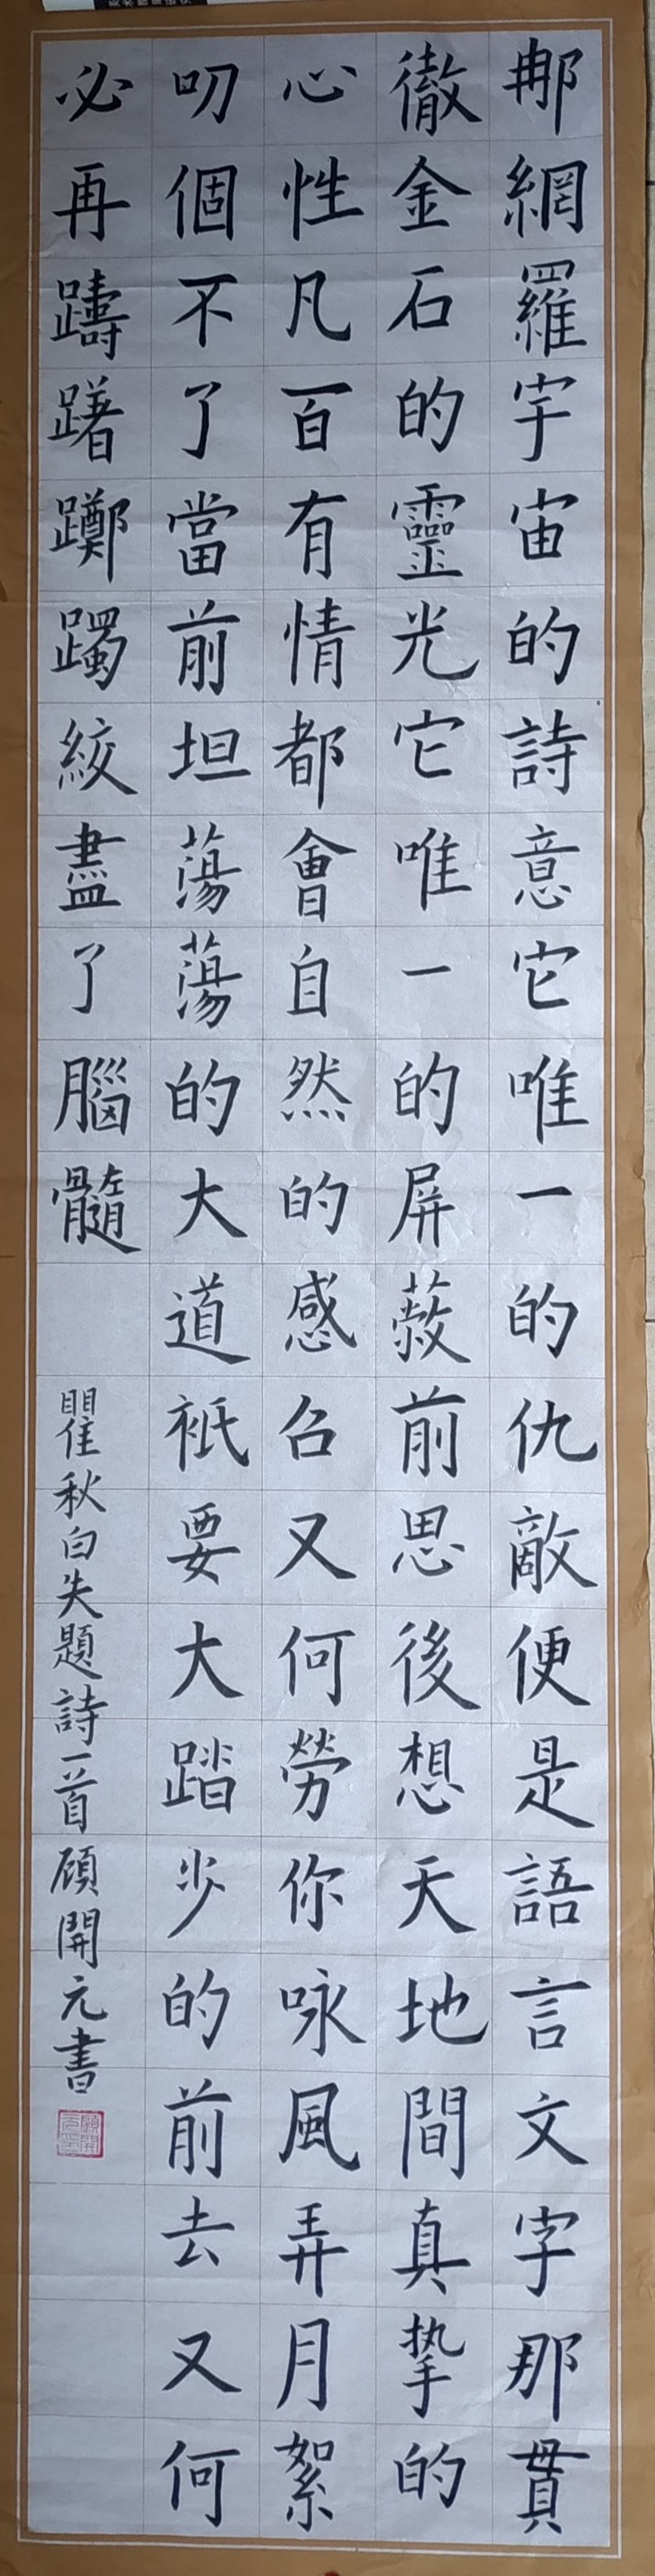 那網羅宇宙的詩意它唯一的仇敵便是語言文字那貫
徹金石的靈光它唯一的屏蔽前思後想天地間真挚的
心性凡百有情都會自然的感召又何勞你咏風弄月絮
叨個不了當前坦蕩蕩的大道衹要大踏步的前去又何
必再躊躇躑躅絞盡了腦髓
瞿秋白失題詩一首頋開元書